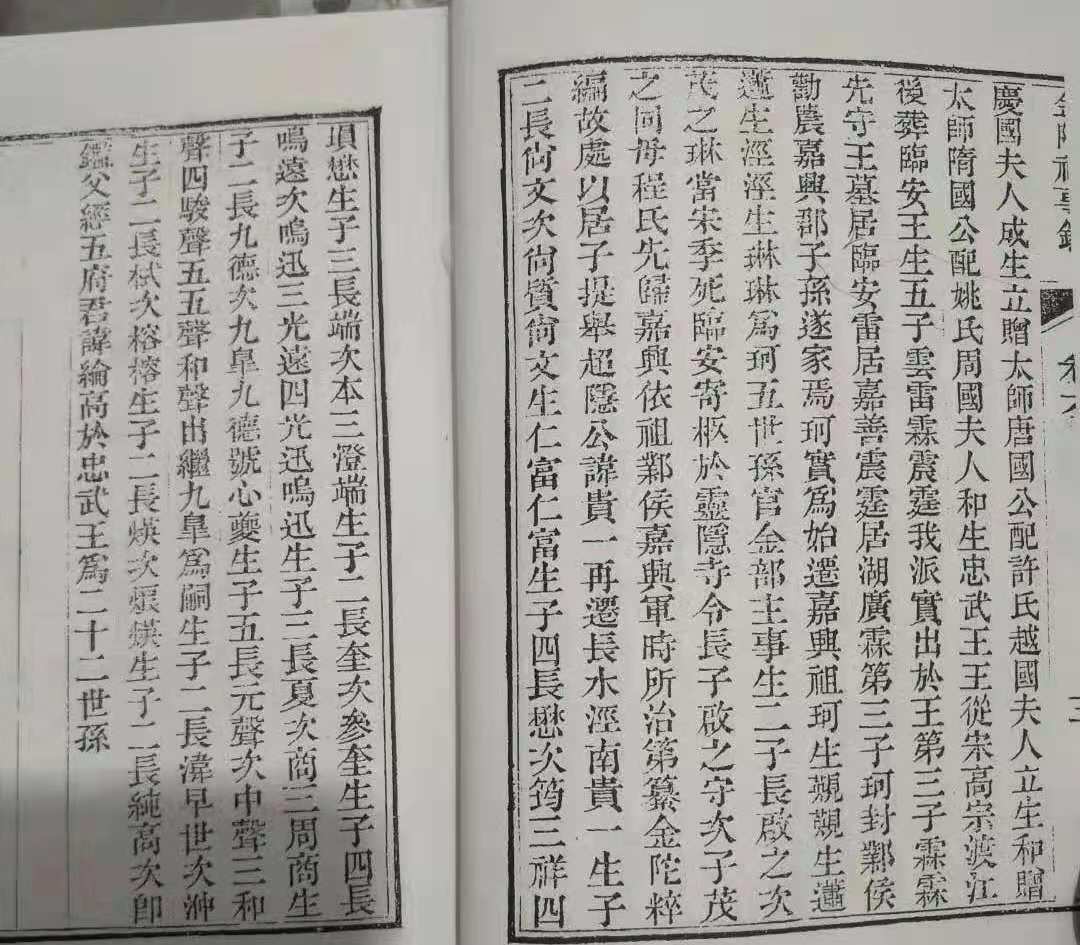 金陀祠事錄
卷六
三
慶國夫人成生立贈太師唐國公配許氏越國夫人立生和贈
太師隋國公配姚氏周國夫人和生忠武王王從宋高宗渡江
後葬臨安王生五子雲雷霖震霆我派實出於王第三子霖霖
先守王墓居臨安雷居嘉善震霆居湖廣霖第三子珂封鄴侯
勸農嘉興郡子孫遂家焉珂實為始遷嘉興祖珂生覿覿生蓮
蓮生涇涇生琳琳為珂五世孫官金部主事生二子長啟之次
茂之琳當宋季死臨安寄柩於靈隱寺令長子啟之守次子茂
之同母程氏先歸嘉興依祖鄴侯嘉興軍時所治第纂金陀粹
編故處以居子提舉超隱公諱貴一再遷長水涇南貴一生子
二長尙文次尙質尙文生仁富仁富生子四長懋次筠三祥四
塤懋生子三長端次本三澄端生子二長奎次參奎生子四長
鳴遠次鳴迅三光遠四光迅鳴迅生子三長夏次商三周商生
子二長九德次九皐九德號心夔生子五長元聲次中聲三和
聲四駿聲五五聲和聲出繼九皐為嗣生子二長湋早世次沖
生子二長栻次榕榕生子二長煐次煨煐生子二長純高次卽
鑑父經五府君諱綸高於忠武王為二十二世孫